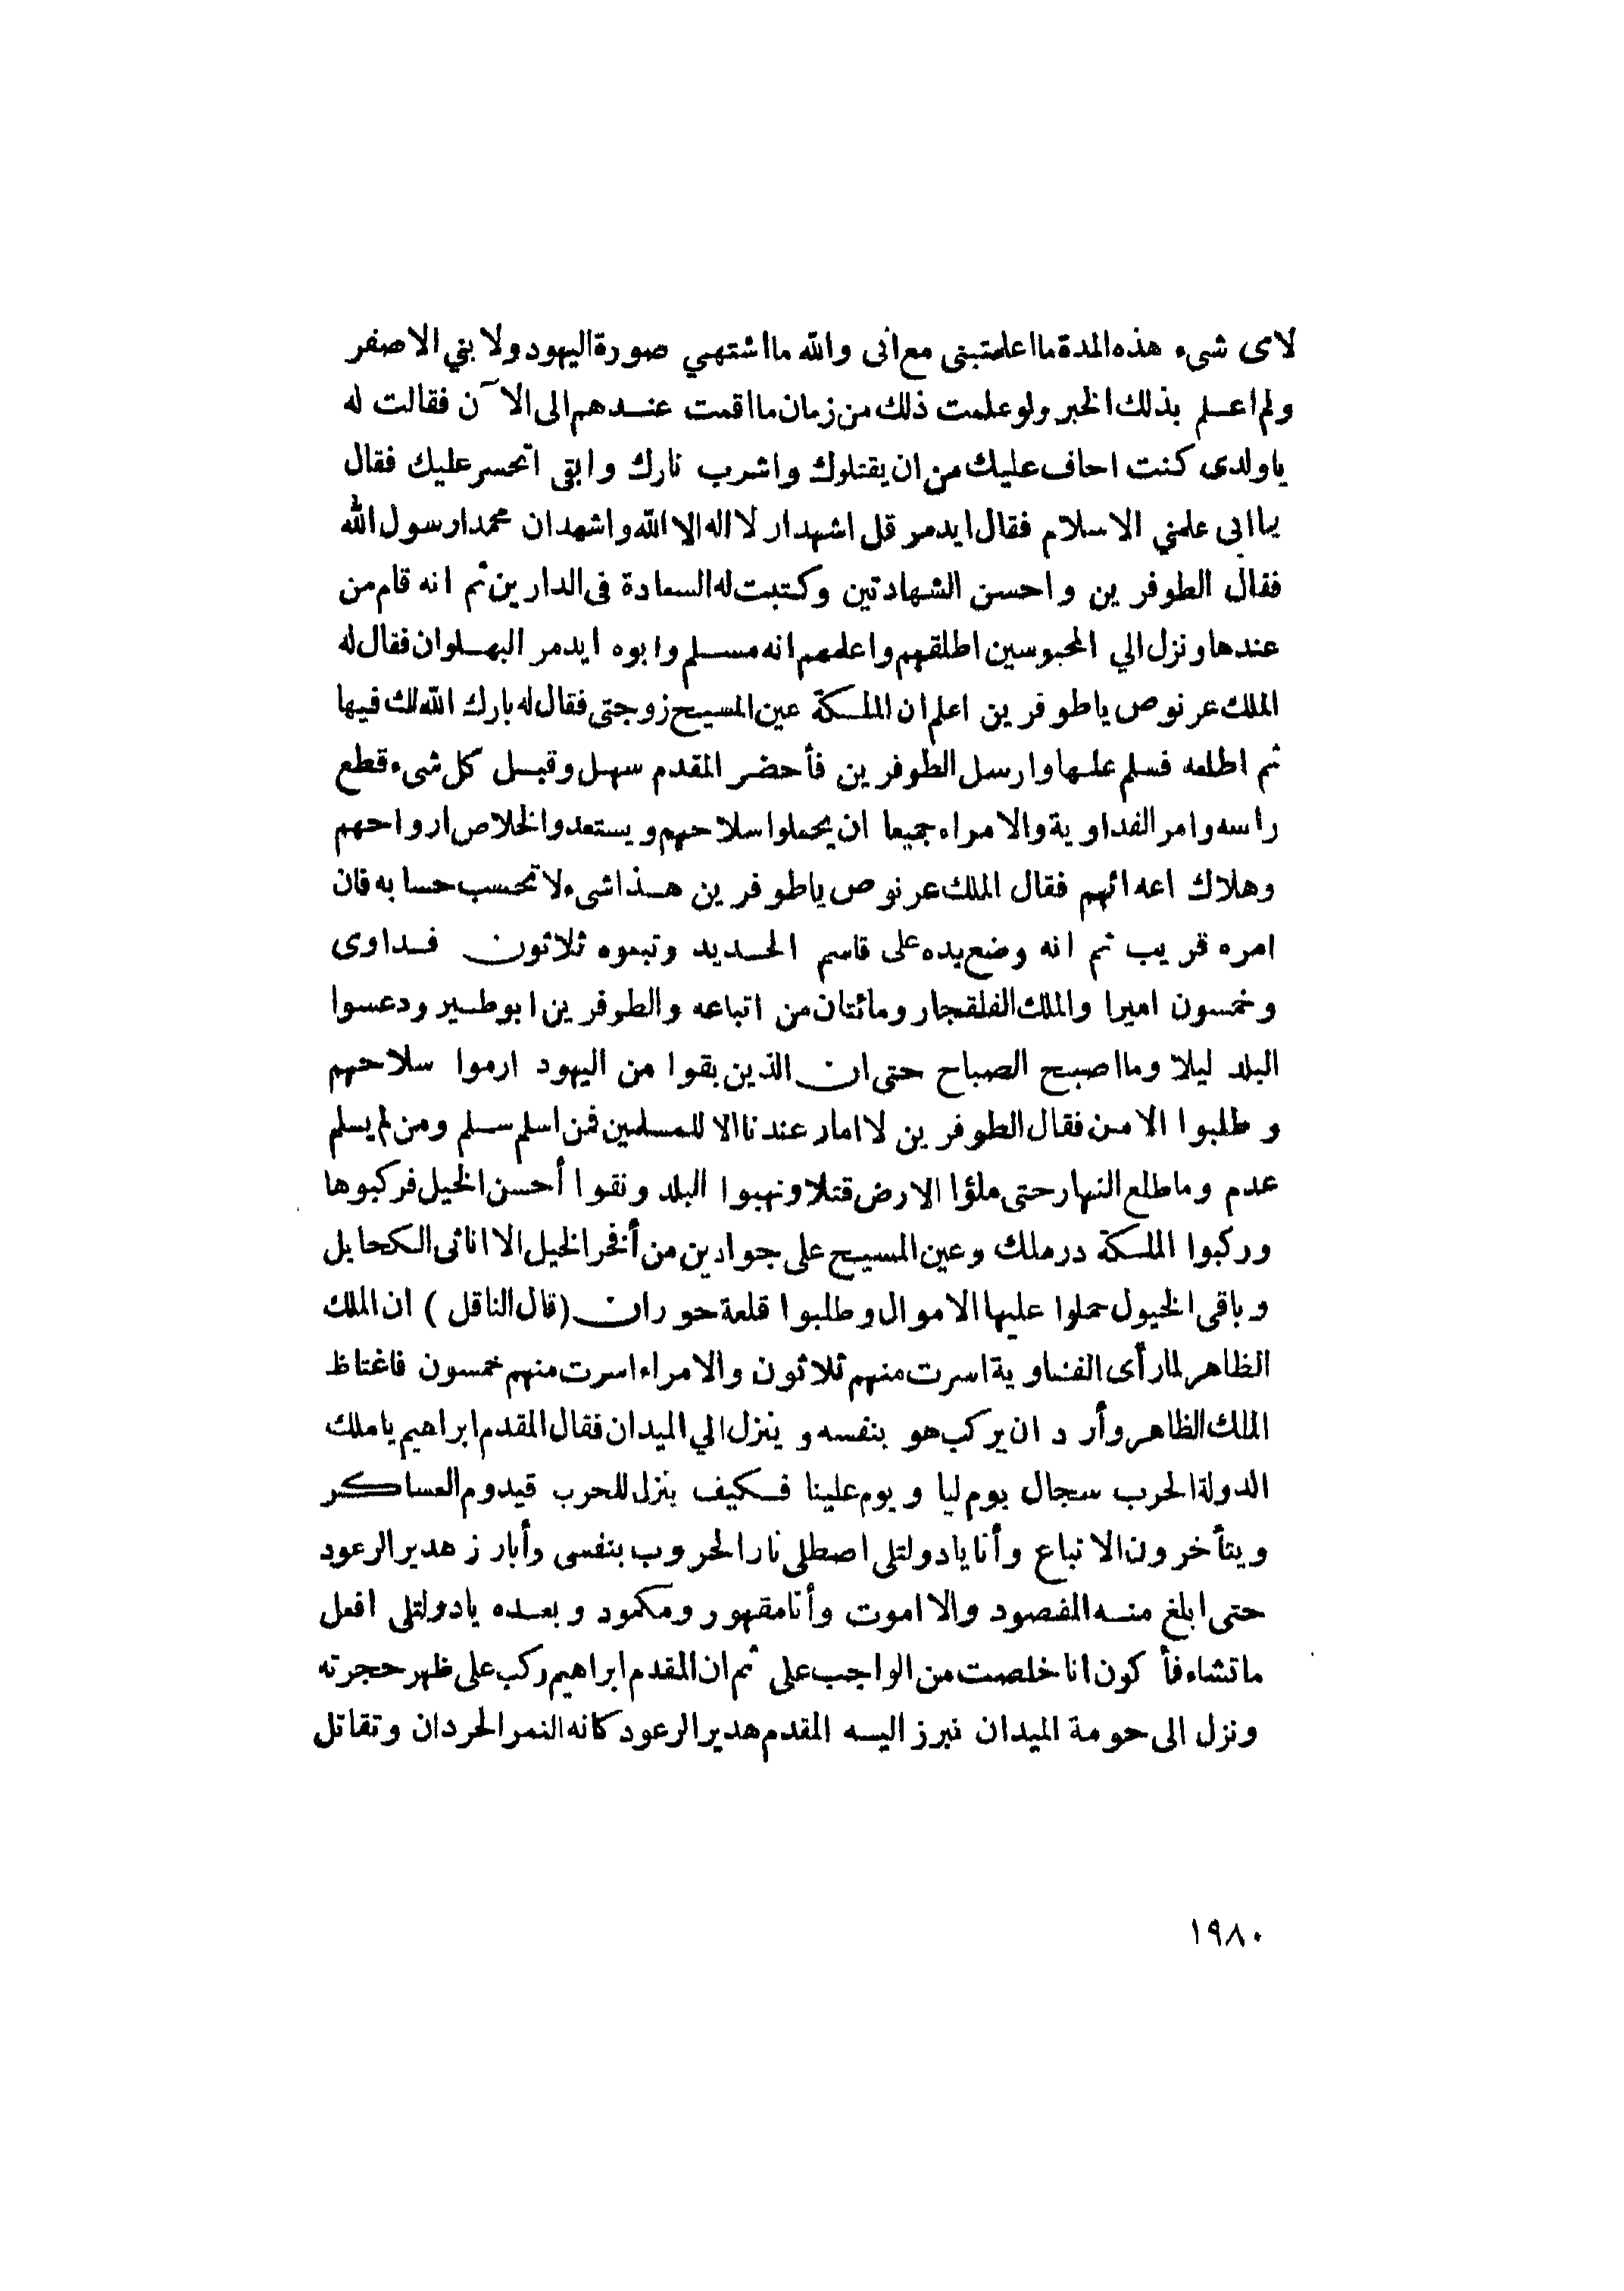 لاى شىء هذه المدة ما اعلمتبنى مع انى والله ما اشتهي صورة اليهود ولا بني الاصفر
ولم اعلم بذلك الخبر ولو علمت ذلك من زمان ما اقمت عندهم الى الآن فقالت له
ياولدى كنت احاف عليك من ان يقتلوك واشرب نارك وابقى اتحسر عليك فقال
يا ابى علمني الاسلام فقال ايدمر قل اشهدار لا اله الا الله واشهد ان محمدا رسول الله
فقال الطوفرين واحسن الشهادتين وكتبت له السعادة فى الدارين ثم انه قام من
عندها ونزل الي المحبوسين اطلقهم واعلمهم انه مسلم وابوه ايدمر البهلوان فقال له
الملك عرنوص ياطوفرين اعلم ان الملكة عين المسيح زوجتى فقال له بارك الله لك فيها
ثم اطلعه فسلم عليها وارسل الطوفرين فأحضر المقدم سهل وقبل كل شىء قطع
راسه وامر الفداوية والامراء جميعا ان يحملوا سلاحهم ويستعدوا لخلاص ارواحهم
وهلاك اعدائهم فقال الملك عرنوص ياطوفرين هذا شىء لا تحسب حسابه فان
امره قريب ثم انه وضع يده على قاسم الحديد وتبعوه ثلاثون فداوى
وخمسون اميرا والملك الفلقجار ومائتان من اتباعه والطوفرين ابوطير ودعسوا
البلد ليلا وما اصبح الصباح حتى ان الذين بقوا من اليهود ارموا سلاحهم
وطلبوا الامن فقال الطوفرين لا امار عندنا الا للمسلمين فمن اسلم سلم ومن لم يسلم
عدم وماطلع النهار حتى ملؤا الارض قتلا ونهبوا البلد ونقوا أحسن الخيل فركبوها
وركبوا الملكة درملك وعين المسيح على جوادين من أفخر الخيل الا اناثى الكحايل
وباقى الخيول حملوا عليها الاموال وطلبوا قلعة حوران (قال الناقل) ان الملك
الظاهر لما رأى الفداوية اسرت منهم ثلاثون والامراء اسرت منهم خمسون فاغتاظ
الملك الظاهر وأرد ان يركب هو بنفسه وينزل الي الميدان فقال المقدم ابراهيم ياملك
الدولة الحرب سجال يوم ليا ويوم علينا فكيف ينزل للحرب قيدوم العساكر
ويتأخرون الاتباع وأنا يادولتلى اصطلى نار الحروب بنفسى وأبارز هدير الرعود
حتى ابلغ منه المقصود والا اموت وأنا مقهور ومكمود وبعده يادولتلى افعل
ماتشاء فأكون انا خلصت من الواجب على ثم ان المقدم ابراهيم ركب على ظهر حجرته
ونزل الى حومة الميدان فبرز اليه المقدم هدير الرعود كانه النمر الحردان وتقاتل
١٩٨٠